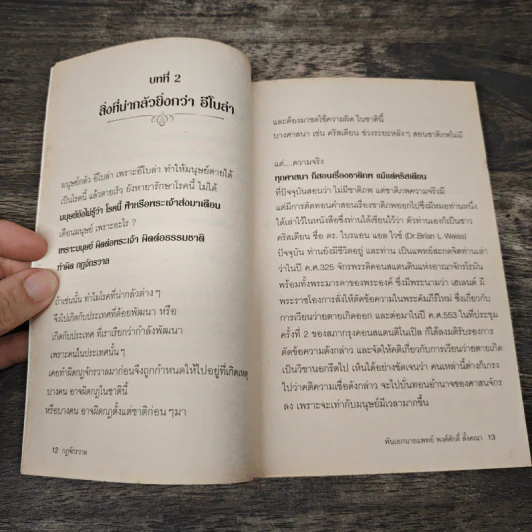 บทที่ 2
สิ่งที่น่ากลัวยิ่งกว่า อีโบล่า
มนุษย์กลัว อีโบล่า เพราะอีโบล่า ทำให้มนุษย์ตายได้
เป็นโรคนี้ แล้วตายเร็ว ยังหายารักษาโรคนี้ ไม่ได้
มนุษย์ยังไม่รู้ว่า โรคนี้ ฟ้าหรือพระเจ้าส่งมาเตือน
เตือนมนุษย์ เพราะอะไร ?
เพราะมนุษย์ ผิดต่อพระเจ้า ผิดต่อธรรมชาติ
ทำผิด กฎจักรวาล
ถ้าเช่นนั้น ทำไมโรคที่น่ากลัวต่างๆ
จึงไปเกิดกับประเทศที่ด้อยพัฒนา หรือ
เกิดกับประเทศ ที่เราเรียกว่ากำลังพัฒนา
เพราะคนในประเทศนั้นๆ
เคยทำผิดกฎจักรวาลมาก่อนจึงถูกกำหนดให้ไปอยู่ที่เกิดเหตุ
บางคน อาจผิดกฎในชาตินี้
หรือบางคน อาจผิดกฎตั้งแต่ชาติก่อน ๆ มา
12 กฎจักรวาล
และต้องมาชดใช้ความผิด ในชาตินี้
บางศาสนา เช่น คริสเตียน ช่วงระยะหลังๆ สอนชาติภพไม่มี
แต่....ความจริง
ทุกศาสนา ก็สอนเรื่องชาติภพ แม้แต่คริสเตียน
ที่ปัจจุบันสอนว่า ไม่มีชาติภพ แต่ชาติภพความจริงมี
แต่มีการตัดทอนคำสอนเรื่องชาติภพออกไปซึ่งมีหมอท่านหนึ่ง
ได้เล่าไว้ในหนังสือซึ่งท่านได้เขียนไว้ว่า ตัวท่านเองก็เป็นชาว
คริสเตียน ชื่อ ดร. ไบรแอน แอล ไวซ์ (Dr.Brian L. Weiss)
ปัจจุบัน ท่านยังมีชีวิตอยู่ และท่าน เป็นแพทย์สะกดจิตท่านเล่า
ว่าในปี ค.ศ.325 จักรพรรดิคอนสแตนตินแห่งอาณาจักรโรมัน
พร้อมทั้งพระมารดาของพระองค์ ซึ่งมีพระนามว่า เฮเลนด์ มี
พระราชโองการสั่งให้ตัดข้อความในพระคัมภีร์ใหม่ ซึ่งเกี่ยวกับ
การเวียนว่ายตายเกิดออก และต่อมาในปี ค.ศ.553 ในที่ประชุม
ครั้งที่ 2 ของสภากรุงคอนสแตนติโนเปิล ก็ได้ลงมติรับรองการ
ตัดข้อความดังกล่าว และจัดให้คติเกี่ยวกับการเวียนว่ายตายเกิด
เป็นวิชานอกรีตไป เห็นได้อย่างชัดเจนว่า คนเหล่านี้ต่างก็เกรง
ไปว่าคติความเชื่อดังกล่าว จะไปบั่นทอนอำนาจของศาสนจักร
ลง เพราะจะเท่ากับมนุษย์มีเวลามากขึ้น
พันเอกนายแพทย์ พงศ์ศักดิ์ ตั้งคณา 13